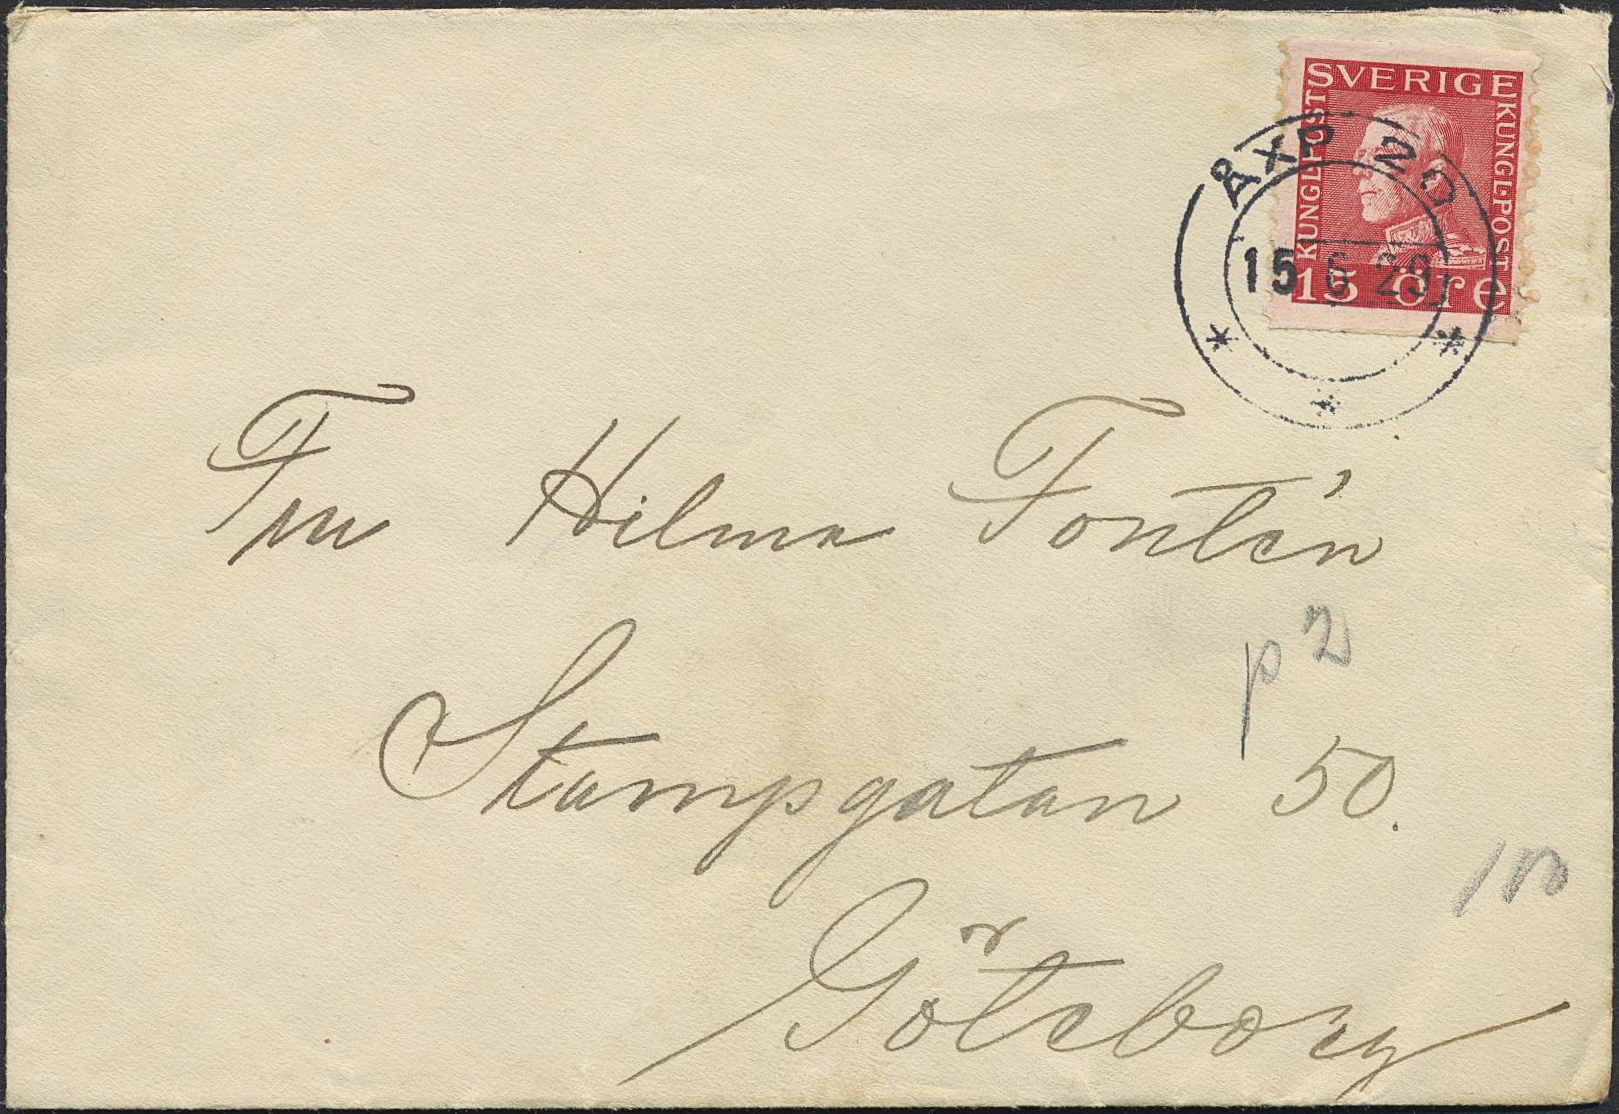 SVERIGE
KUNGL.POST
KUNGL.POST
15 öre
ÅXP NO
15 6 29
Fru Hilma Fontén
p 2
Stampgatan 50.
Göteborg